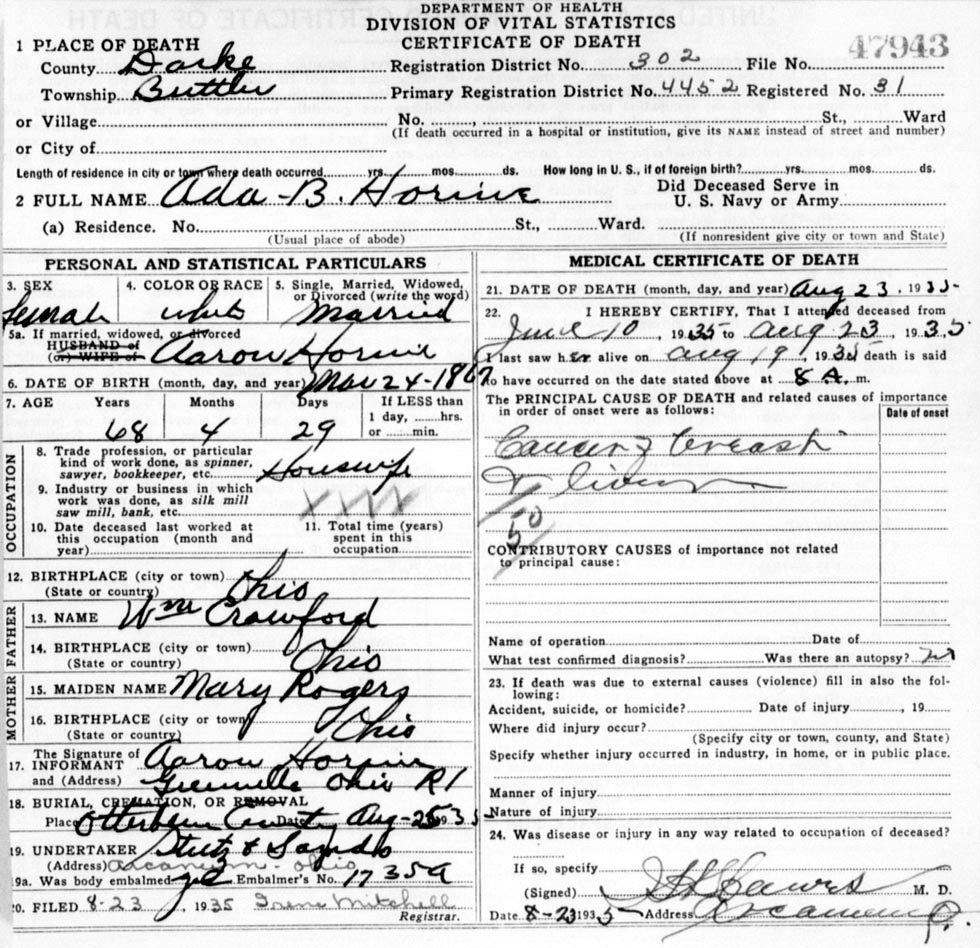 DEPARTMENT OF HEALTH
DIVISION OF VITAL STATISTICS
CERTIFICATE OF DEATH
47943
1 PLACE OF DEATH
County Darke Registration District No. 302 File No.
Township Buttler Primary Registration District No. 4452 Registered No. 31
or Village No. , St., Ward
(If death occurred in a hospital or institution, give its NAME instead of street and number)
or City of
Length of residence in city or town where death occurred yrs. mos. ds. How long in U. S., if of foreign birth? yrs. mos. ds.
2 FULL NAME Ada B. Horine Did Deceased Serve in U. S. Navy or Army
(a) Residence. No. St., Ward.
(Usual place of abode) (If nonresident give city or town and State)
PERSONAL AND STATISTICAL PARTICULARS
3. SEX 4. COLOR OR RACE 5. Single, Married, Widowed, or Divorced (write the word)
Female white Married
5a. If married, widowed, or divorced
HUSBAND of
(or) WIFE of Aaron Horine
6. DATE OF BIRTH (month, day, and year) Mar 24-1867
7. AGE Years Months Days If LESS than
1 day, hrs.
or min.
68 4 29
OCCUPATION
8. Trade, profession, or particular
kind of work done, as spinner,
sawyer, bookkeeper, etc. Housewife
9. Industry or business in which
work was done, as silk mill
saw mill, bank, etc.
10. Date deceased last worked at
this occupation (month and
year)
11. Total time (years)
spent in this
occupation
12. BIRTHPLACE (city or town)
(State or country) Ohio
FATHER
13. NAME Wm Crawford
14. BIRTHPLACE (city or town)
(State or country) Ohio
MOTHER
15. MAIDEN NAME Mary Rogers
16. BIRTHPLACE (city or town)
(State or country) Ohio
The Signature of
17. INFORMANT Aaron Horine
and (Address) Greenville Ohio R1
18. BURIAL, CREMATION, OR REMOVAL
Place Otterbein Date Aug-25 1935
19. UNDERTAKER Stutz &
(Address) Arcanum Ohio
19a. Was body embalmed yes Embalmer's No. 1735A
20. FILED 8-23, 1935 Irene Mitchell
Registrar.
MEDICAL CERTIFICATE OF DEATH
21. DATE OF DEATH (month, day, and year) Aug 23, 1935
22. I HEREBY CERTIFY, That I attended deceased from
June 10, 1935 to Aug 23, 1935
I last saw her alive on Aug 19, 1935 death is said
to have occurred on the date stated above at 8 A. m.
The PRINCIPAL CAUSE OF DEATH and related causes of importance
in order of onset were as follows:
Date of onset
Cancer of breast
& liver
50
CONTRIBUTORY CAUSES of importance not related
to principal cause:
Name of operation Date of
What test confirmed diagnosis? Was there an autopsy? no
23. If death was due to external causes (violence) fill in also the fol-
lowing:
Accident, suicide, or homicide? Date of injury , 19
Where did injury occur?
(Specify city or town, county, and State)
Specify whether injury occurred in industry, in home, or in public place.
Manner of injury
Nature of injury
24. Was disease or injury in any way related to occupation of deceased?
If so, specify
(Signed) M. D.
Date 8-23 1935 Address Arcanum O.